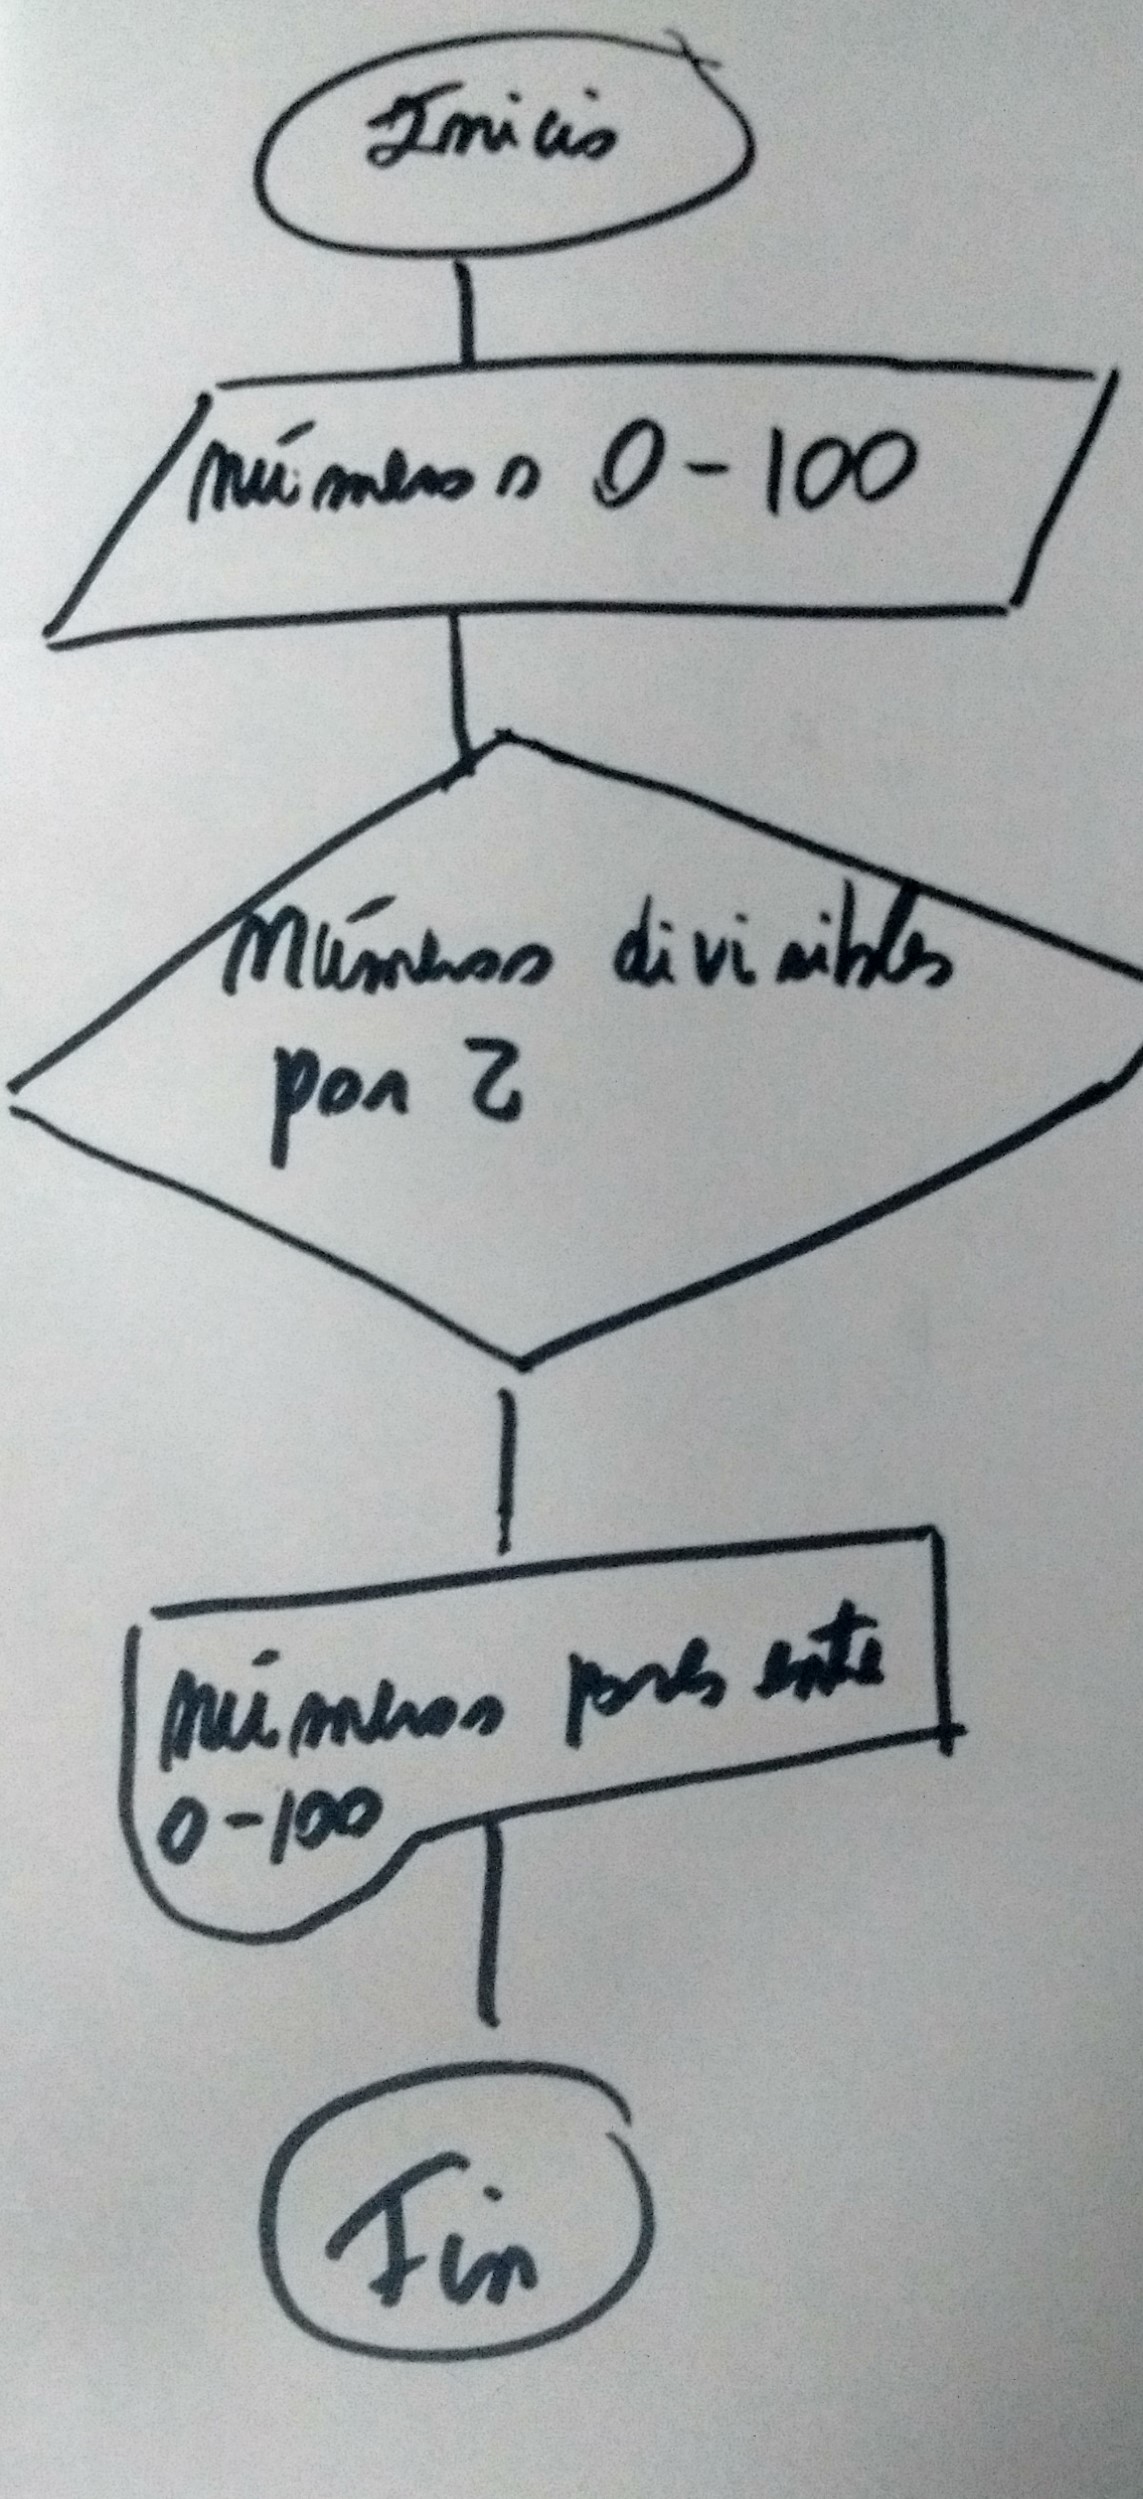 Inicio
números 0-100
Números divisibles
por 2
números pares ente
0-100
Fin